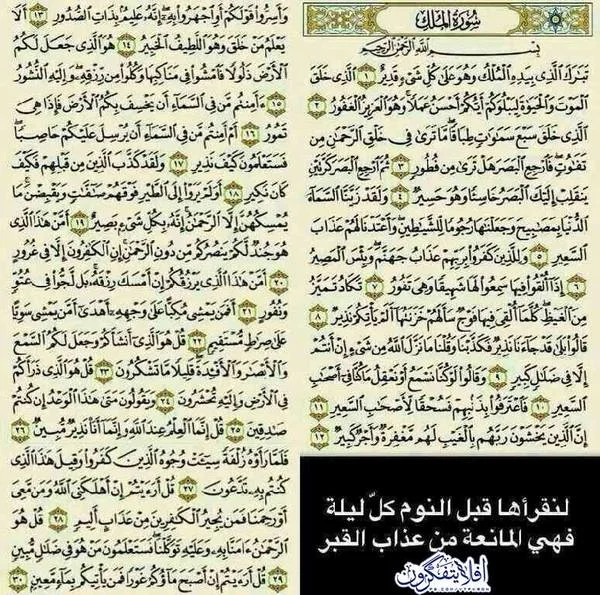 سُورَةُ المُلْكِ
بِسْمِ اللَّهِ الرَّحْمَٰنِ الرَّحِيمِ
تَبَٰرَكَ الَّذِي بِيَدِهِ الْمُلْكُ وَهُوَ عَلَىٰ كُلِّ شَيْءٍ قَدِيرٌ ١ الَّذِي خَلَقَ
الْمَوْتَ وَالْحَيَوٰةَ لِيَبْلُوَكُمْ أَيُّكُمْ أَحْسَنُ عَمَلًا وَهُوَ الْعَزِيزُ الْغَفُورُ ٢
الَّذِي خَلَقَ سَبْعَ سَمَٰوَٰتٍ طِبَاقًا مَّا تَرَىٰ فِي خَلْقِ الرَّحْمَٰنِ مِن
تَفَٰوُتٍ فَارْجِعِ الْبَصَرَ هَلْ تَرَىٰ مِن فُطُورٍ ٣ ثُمَّ ارْجِعِ الْبَصَرَ كَرَّتَيْنِ
يَنقَلِبْ إِلَيْكَ الْبَصَرُ خَاسِئًا وَهُوَ حَسِيرٌ ٤ وَلَقَدْ زَيَّنَّا السَّمَاءَ
الدُّنْيَا بِمَصَٰبِيحَ وَجَعَلْنَٰهَا رُجُومًا لِّلشَّيَٰطِينِ وَأَعْتَدْنَا لَهُمْ عَذَابَ
السَّعِيرِ ٥ وَلِلَّذِينَ كَفَرُوا بِرَبِّهِمْ عَذَابُ جَهَنَّمَ وَبِئْسَ الْمَصِيرُ
٦ إِذَا أُلْقُوا فِيهَا سَمِعُوا لَهَا شَهِيقًا وَهِيَ تَفُورُ ٧ تَكَادُ تَمَيَّزُ
مِنَ الْغَيْظِ كُلَّمَا أُلْقِيَ فِيهَا فَوْجٌ سَأَلَهُمْ خَزَنَتُهَا أَلَمْ يَأْتِكُمْ نَذِيرٌ ٨
قَالُوا بَلَىٰ قَدْ جَاءَنَا نَذِيرٌ فَكَذَّبْنَا وَقُلْنَا مَا نَزَّلَ اللَّهُ مِن شَيْءٍ إِنْ أَنتُمْ
إِلَّا فِي ضَلَٰلٍ كَبِيرٍ ٩ وَقَالُوا لَوْ كُنَّا نَسْمَعُ أَوْ نَعْقِلُ مَا كُنَّا فِي أَصْحَٰبِ
السَّعِيرِ ١٠ فَاعْتَرَفُوا بِذَنبِهِمْ فَسُحْقًا لِّأَصْحَٰبِ السَّعِيرِ ١١
إِنَّ الَّذِينَ يَخْشَوْنَ رَبَّهُم بِالْغَيْبِ لَهُم مَّغْفِرَةٌ وَأَجْرٌ كَبِيرٌ ١٢
وَأَسِرُّوا قَوْلَكُمْ أَوِ اجْهَرُوا بِهِ إِنَّهُ عَلِيمٌ بِذَاتِ الصُّدُورِ ١٣ أَلَا
يَعْلَمُ مَنْ خَلَقَ وَهُوَ اللَّطِيفُ الْخَبِيرُ ١٤ هُوَ الَّذِي جَعَلَ لَكُمُ
الْأَرْضَ ذَلُولًا فَامْشُوا فِي مَنَاكِبِهَا وَكُلُوا مِن رِّزْقِهِ وَإِلَيْهِ النُّشُورُ
١٥ ءَأَمِنتُم مَّن فِي السَّمَاءِ أَن يَخْسِفَ بِكُمُ الْأَرْضَ فَإِذَا هِيَ
تَمُورُ ١٦ أَمْ أَمِنتُم مَّن فِي السَّمَاءِ أَن يُرْسِلَ عَلَيْكُمْ حَاصِبًا
فَسَتَعْلَمُونَ كَيْفَ نَذِيرِ ١٧ وَلَقَدْ كَذَّبَ الَّذِينَ مِن قَبْلِهِمْ فَكَيْفَ
كَانَ نَكِيرِ ١٨ أَوَلَمْ يَرَوْا إِلَى الطَّيْرِ فَوْقَهُمْ صَٰفَّٰتٍ وَيَقْبِضْنَ مَا
يُمْسِكُهُنَّ إِلَّا الرَّحْمَٰنُ إِنَّهُ بِكُلِّ شَيْءٍ بَصِيرٌ ١٩ أَمَّنْ هَٰذَا الَّذِي
هُوَ جُندٌ لَّكُمْ يَنصُرُكُم مِّن دُونِ الرَّحْمَٰنِ إِنِ الْكَٰفِرُونَ إِلَّا فِي غُرُورٍ
٢٠ أَمَّنْ هَٰذَا الَّذِي يَرْزُقُكُمْ إِنْ أَمْسَكَ رِزْقَهُ بَل لَّجُّوا فِي عُتُوٍّ
وَنُفُورٍ ٢١ أَفَمَن يَمْشِي مُكِبًّا عَلَىٰ وَجْهِهِ أَهْدَىٰ أَمَّن يَمْشِي سَوِيًّا
عَلَىٰ صِرَٰطٍ مُّسْتَقِيمٍ ٢٢ قُلْ هُوَ الَّذِي أَنشَأَكُمْ وَجَعَلَ لَكُمُ السَّمْعَ
وَالْأَبْصَٰرَ وَالْأَفْئِدَةَ قَلِيلًا مَّا تَشْكُرُونَ ٢٣ قُلْ هُوَ الَّذِي ذَرَأَكُمْ
فِي الْأَرْضِ وَإِلَيْهِ تُحْشَرُونَ ٢٤ وَيَقُولُونَ مَتَىٰ هَٰذَا الْوَعْدُ إِن كُنتُمْ
صَٰدِقِينَ ٢٥ قُلْ إِنَّمَا الْعِلْمُ عِندَ اللَّهِ وَإِنَّمَا أَنَا نَذِيرٌ مُّبِينٌ ٢٦
فَلَمَّا رَأَوْهُ زُلْفَةً سِيئَتْ وُجُوهُ الَّذِينَ كَفَرُوا وَقِيلَ هَٰذَا الَّذِي
كُنتُم بِهِ تَدَّعُونَ ٢٧ قُلْ أَرَءَيْتُمْ إِنْ أَهْلَكَنِيَ اللَّهُ وَمَن مَّعِيَ
أَوْ رَحِمَنَا فَمَن يُجِيرُ الْكَٰفِرِينَ مِنْ عَذَابٍ أَلِيمٍ ٢٨ قُلْ هُوَ
الرَّحْمَٰنُ ءَامَنَّا بِهِ وَعَلَيْهِ تَوَكَّلْنَا فَسَتَعْلَمُونَ مَنْ هُوَ فِي ضَلَٰلٍ مُّبِينٍ
٢٩ قُلْ أَرَءَيْتُمْ إِنْ أَصْبَحَ مَاؤُكُمْ غَوْرًا فَمَن يَأْتِيكُم بِمَاءٍ مَّعِينٍ ٣٠
لنقرأها قبل النوم كلّ ليلة
فهي المانعة من عذاب القبر
أفلا يتفكرون